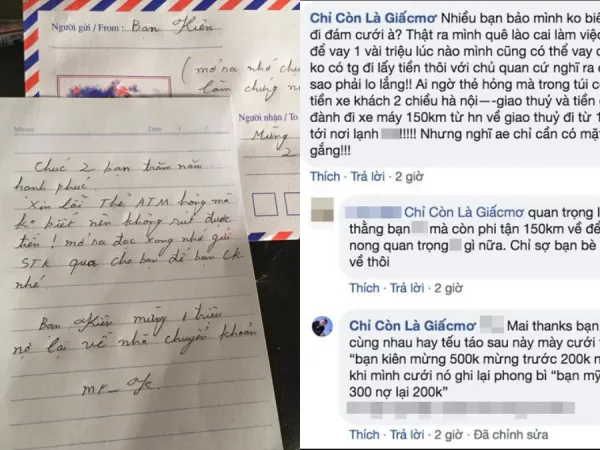 Người gửi / From : Bạn Kiên
( mở ra nhớ
làm chứng
Người nhận / To
Mừng
2
Memo
Date / /
Chúc 2 bạn trăm năm
hạnh phúc.
Xin lỗi Thẻ ATM hỏng mà
ko biết nên không rút được
tiền ! mở ra đọc xong nhớ gửi
STK qua cho bạn để bạn CK
nhé.
Bạn Kiên mừng 1 triệu
nợ lại về nhà chuyển khoản
mr_ K.
Chỉ Còn Là Giấcmơ Nhiều bạn bảo mình ko biế
đi đám cưới à? Thật ra mình quê lào cai làm việc
để vay 1 vài triệu lúc nào mình cũng có thể vay c
ko có tg đi lấy tiền thôi với chủ quan cứ nghĩ ra c
sao phải lo lắng!! Ai ngờ thẻ hỏng mà trong túi c
tiền xe khách 2 chiều hà nội—-giao thuỷ và tiền
đành đi xe máy 150km từ hn về giao thuỷ đi từ 1
tới nơi lạnh !!!!! Nhưng nghĩ ae chỉ cần có mặt
gắng!!!
Thích · Trả lời · 2 giờ
Chỉ Còn Là Giấcmơ quan trọng l
thằng bạn mà còn phi tận 150km về để
nong quan trọng gì nữa. Chỉ sợ bạn bè
về thôi
Thích · Trả lời · 2 giờ
Chỉ Còn Là Giấcmơ Mai thanks bạn
cùng nhau hay tếu táo sau này mày cưới t
“bạn kiên mừng 500k mừng trước 200k n
khi mình cưới nó ghi lại phong bì “bạn mỹ
300 nợ lại 200k”
Thích · Trả lời · 2 giờ · Đã chỉnh sửa